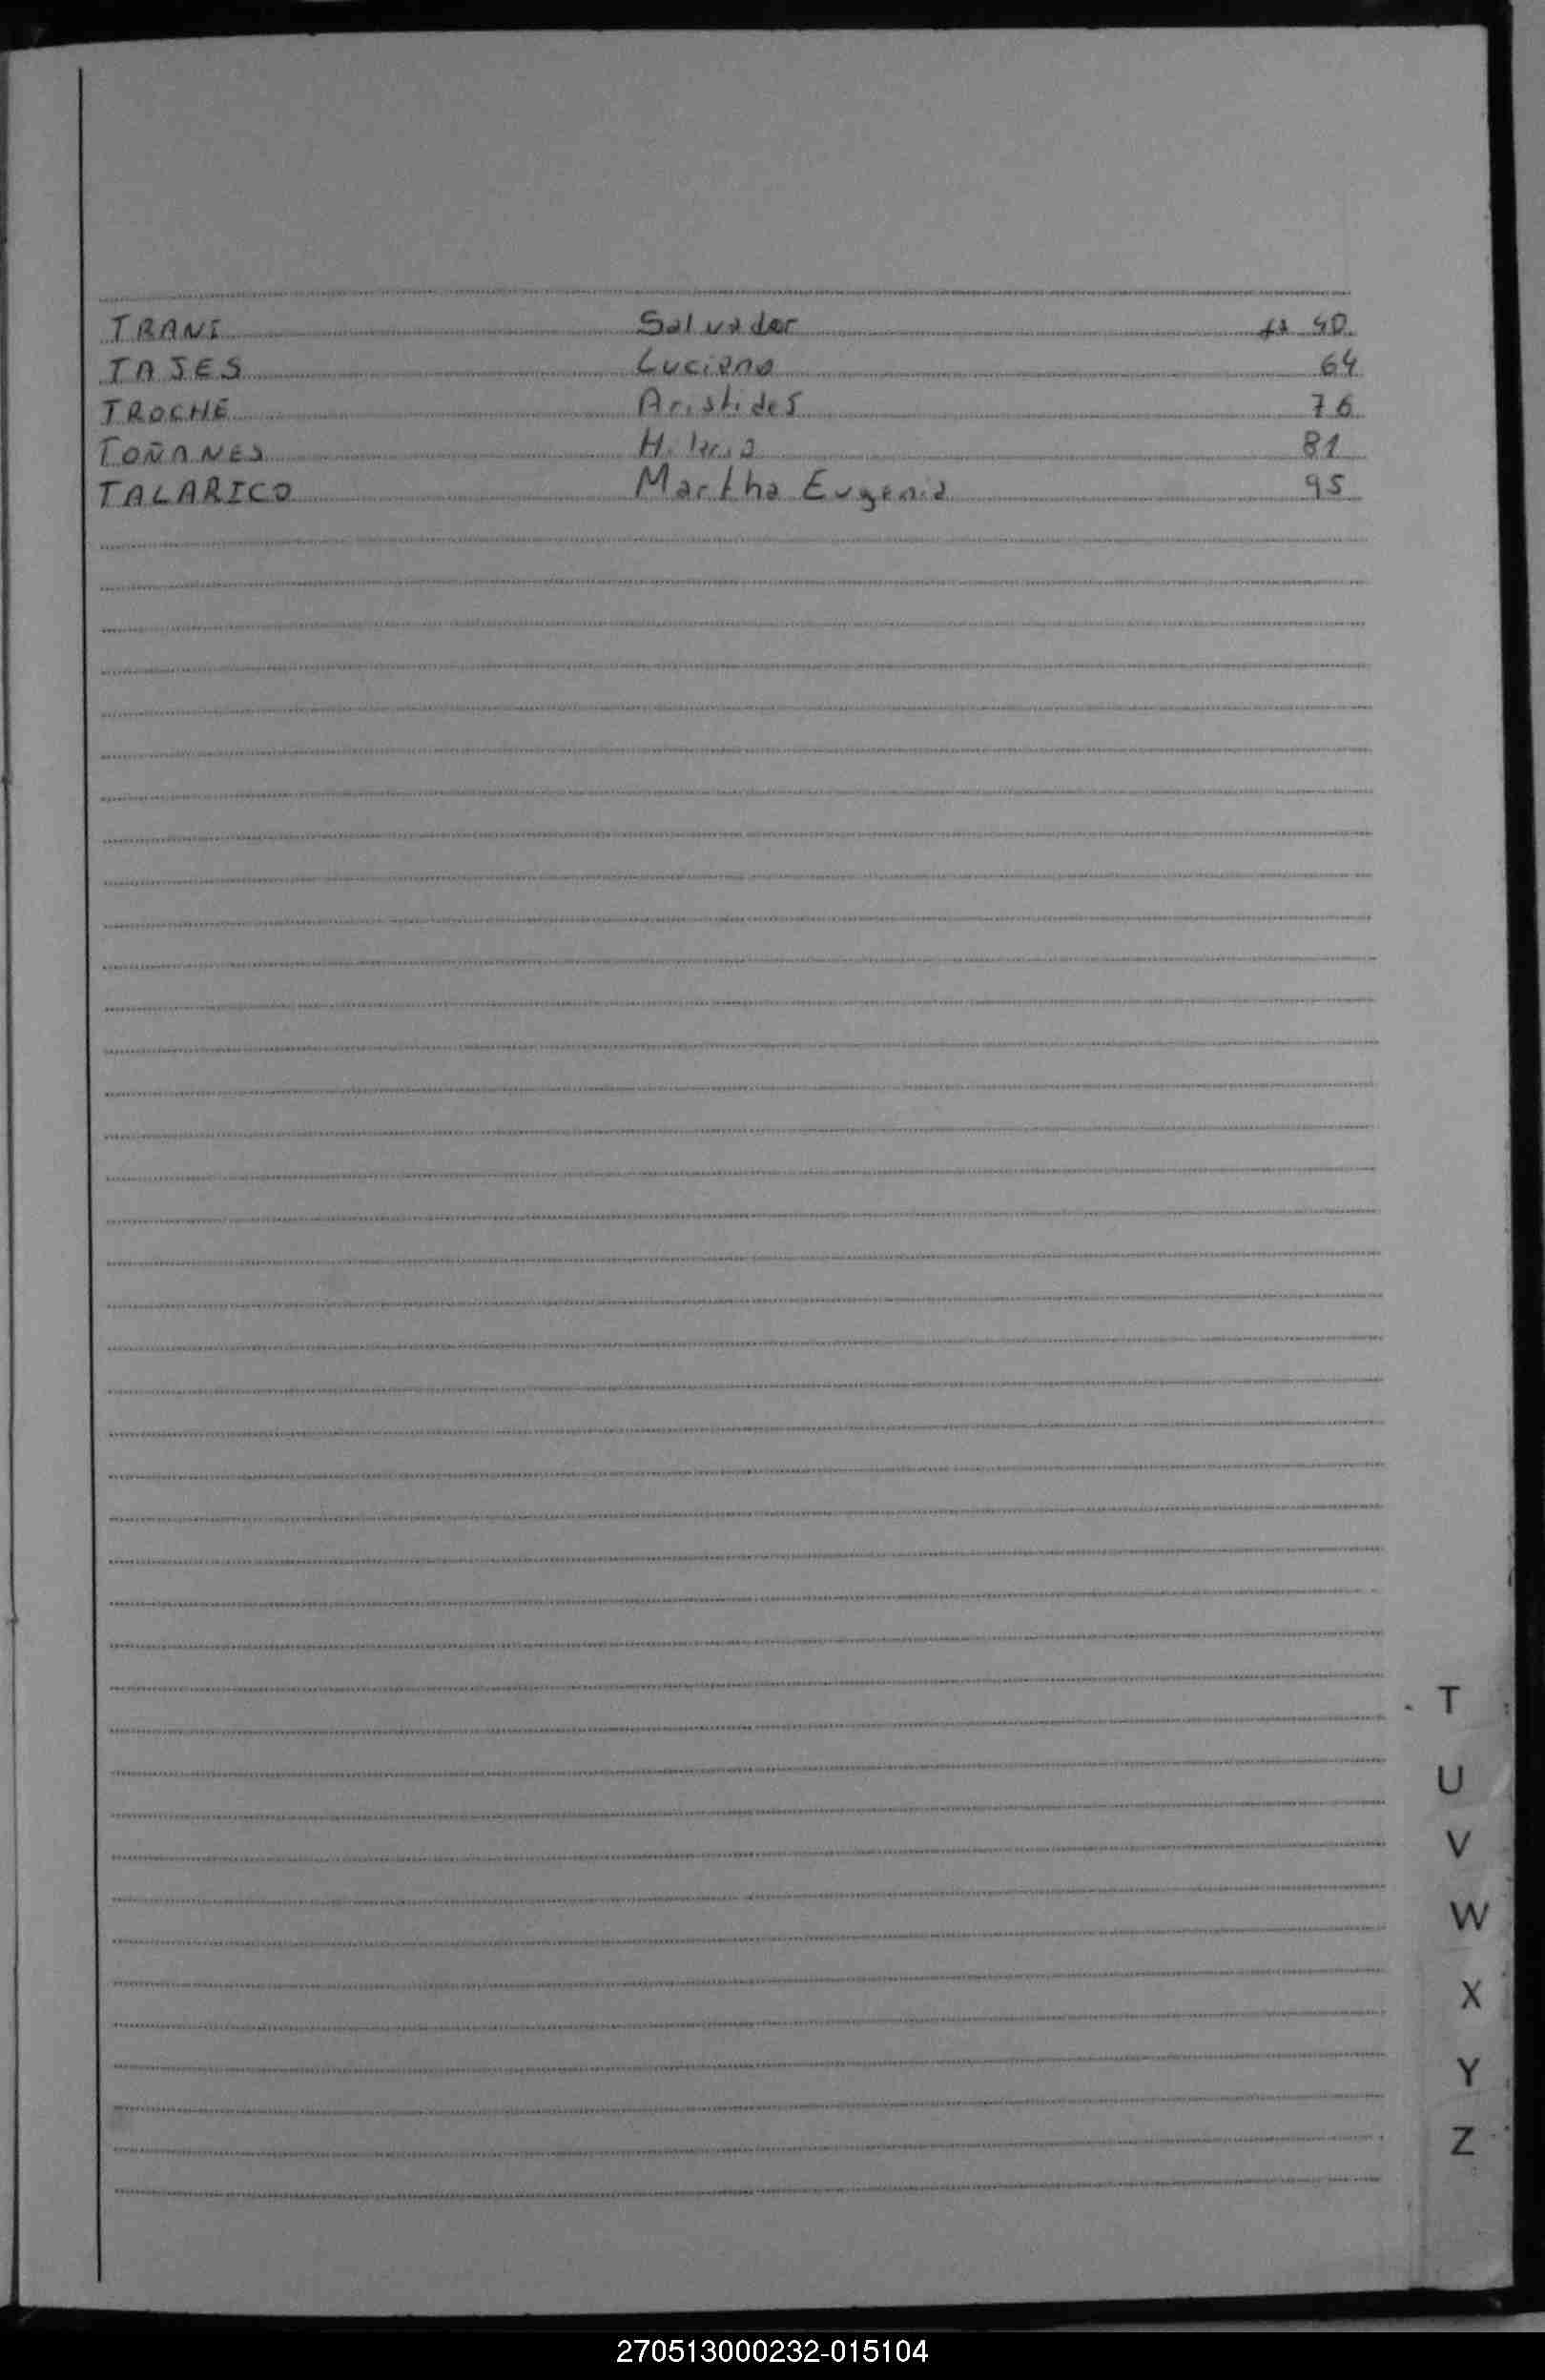 TRANI Salvador fs 40
TASES Luciano 64
TROCHE Aristides 76
TOÑANES 81
TALARICO Martha Eugenia 95
T
U
V
W
X
Y
Z
270513000232-015104